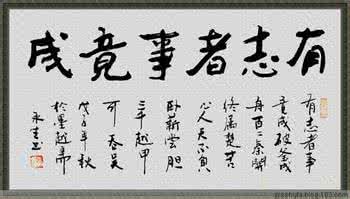 有志者事竟成
有志者事
竟成破釜沉
舟百二秦關
终屬楚苦
心人天不負
卧薪尝胆
三千越甲
可吞吴
戊子年秋
於墨越斋